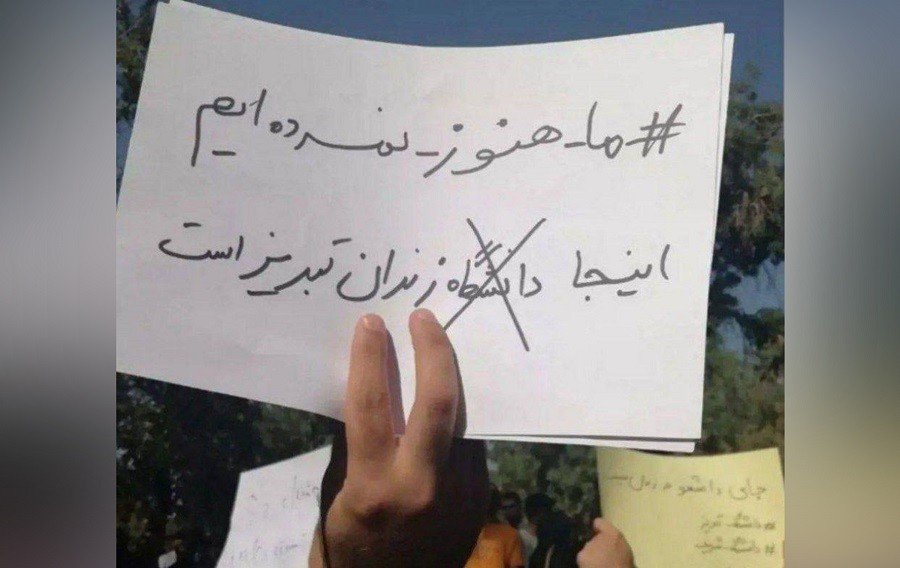 #ما_هنوز_نمرده ایم
اینجا دانشگاه زندان تبریز است
جای دانشجو
#دانشگاه تبریز